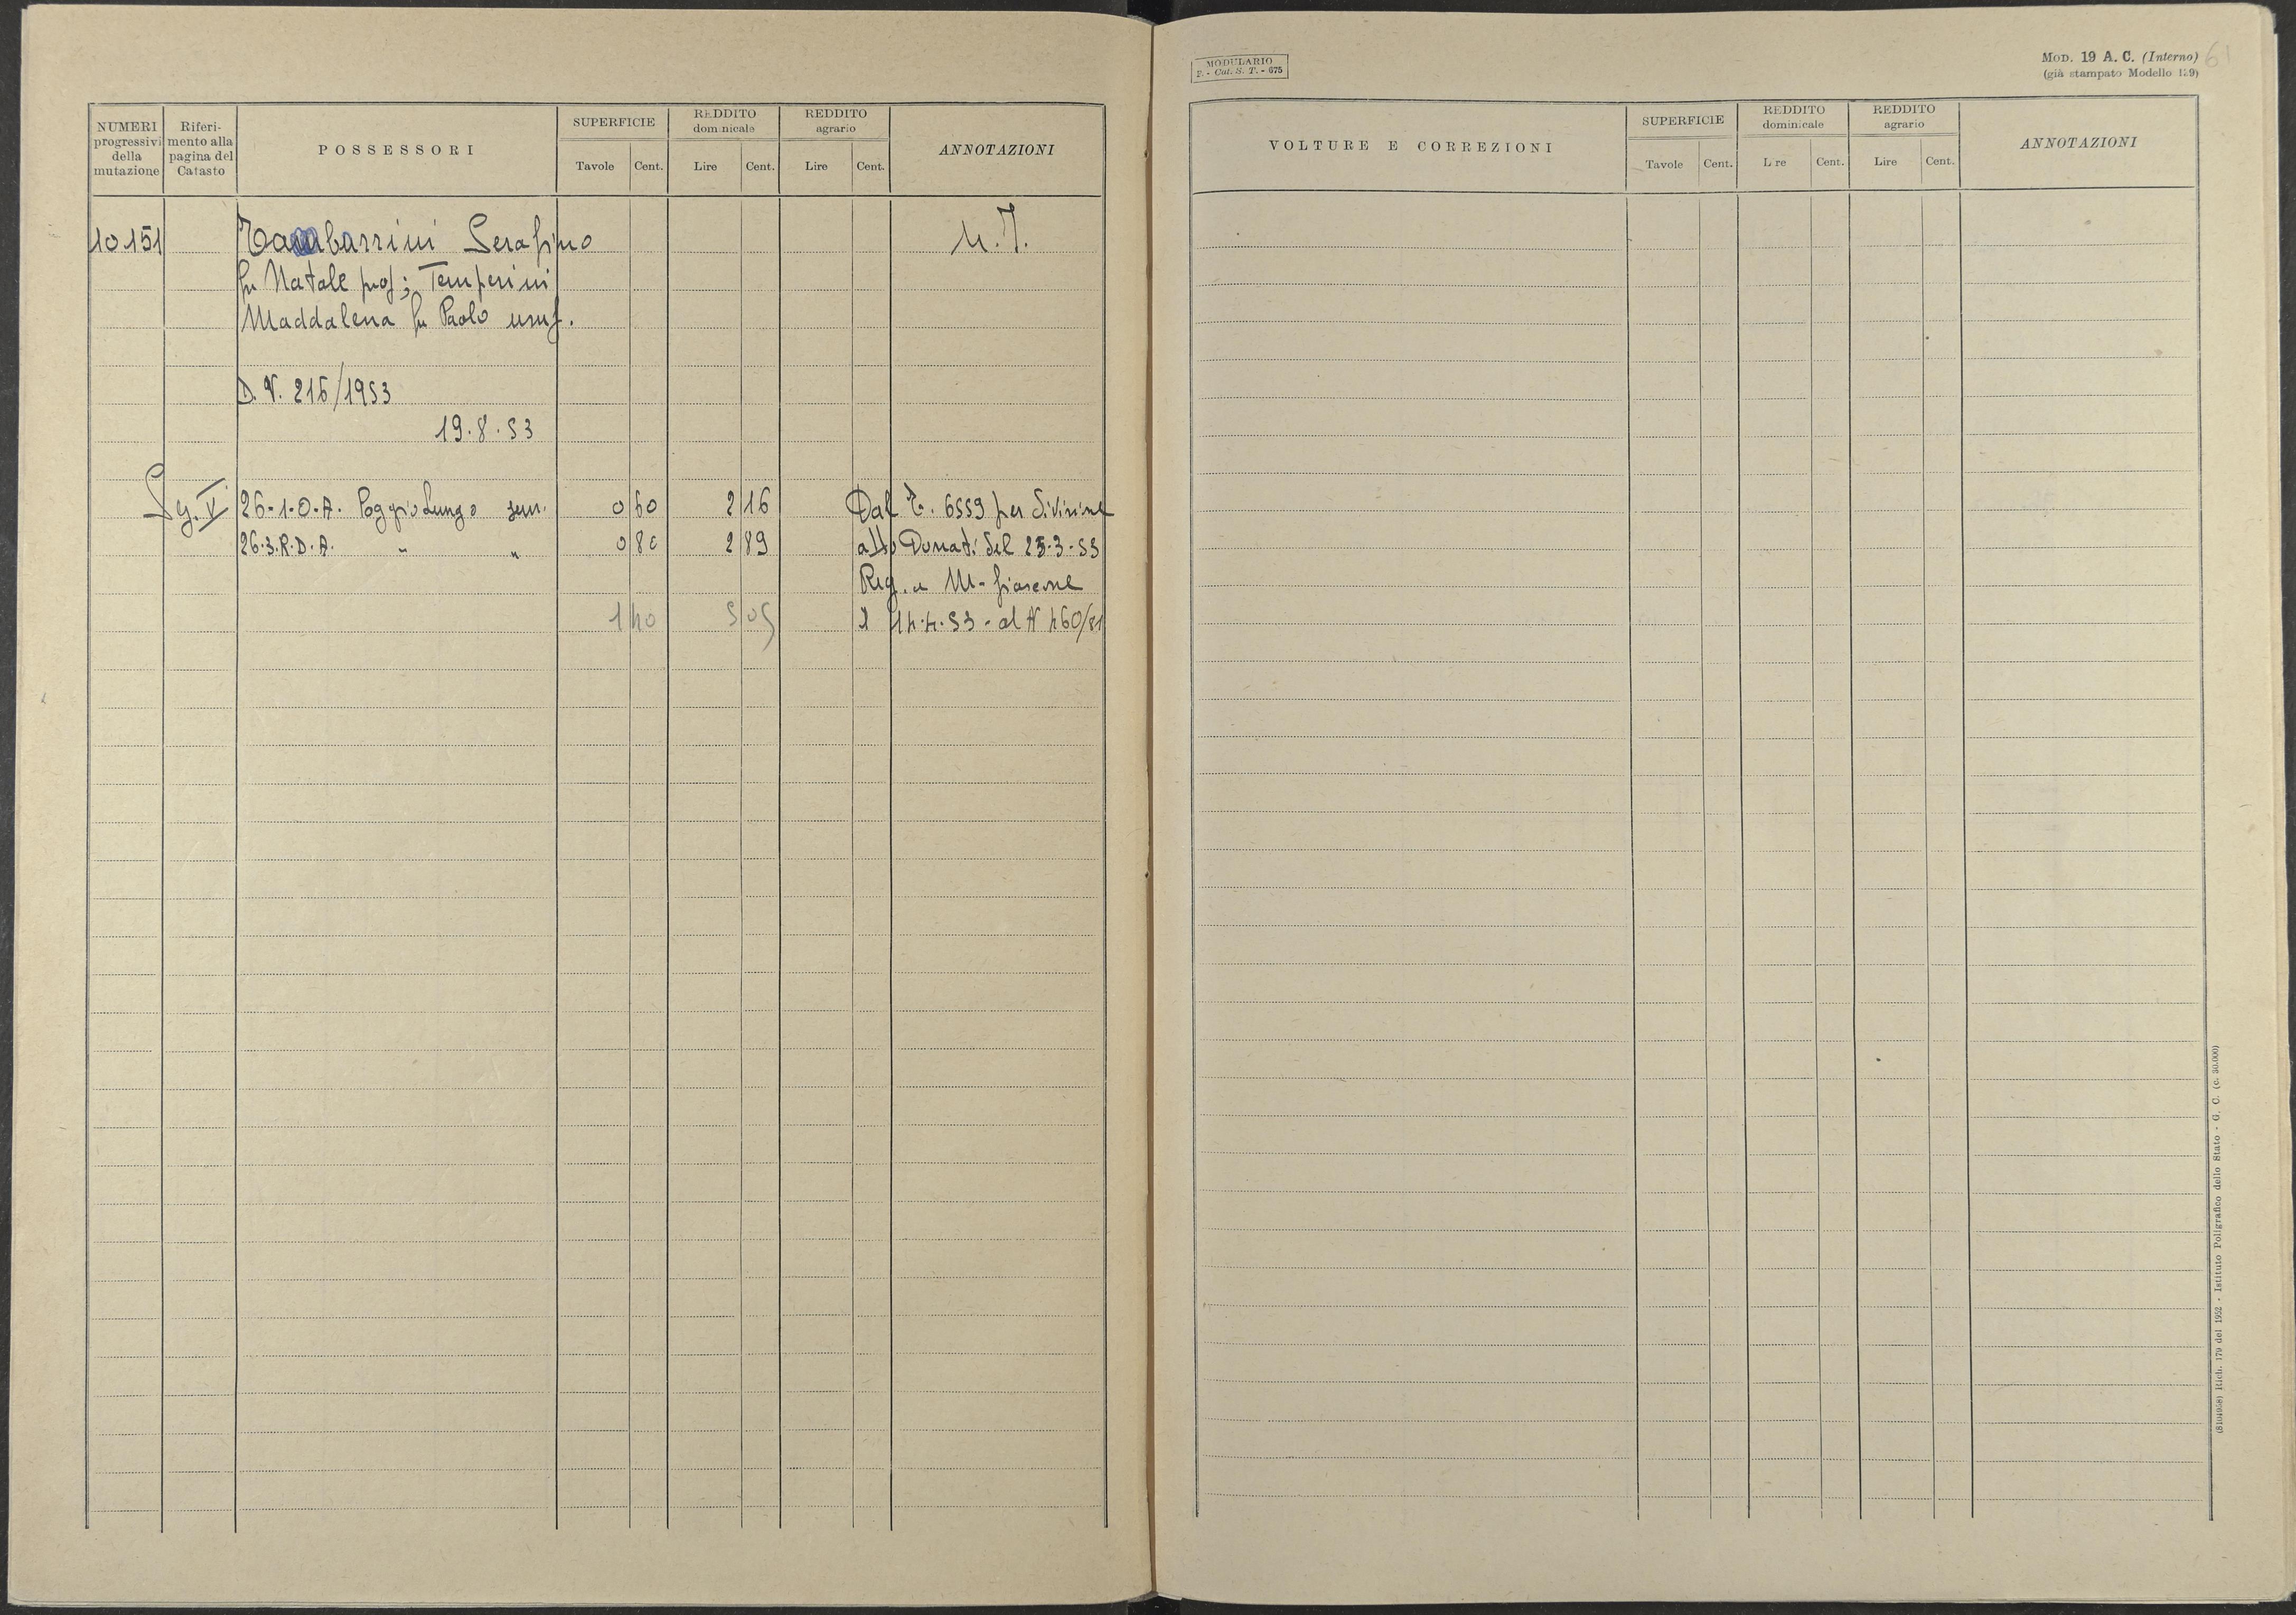 NUMERI progressivi della mutazione
Riferi- mento alla pagina del Catasto
POSSESSORI
SUPERFICIE
Tavole Cent.
REDDITO dominicale
Lire Cent.
REDDITO agrario
Lire Cent.
ANNOTAZIONI
10151 Serafino M.T.
fu Natale prop; Temperini
Maddalena fu Paolo usuf.
D. N. 216/1953
19.8.53
Sez. V 26.1.O.A. Poggio Lungo sem. 0 60 2 16 Dal T. 6559 per divisione
26.3.R.D.A. " " 0 80 2 89 atto Donati del 25.3.53
Reg. a M-fiascone
1 40 5 05 il 14.4.53 - al N 460/81
MODULARIO
F. - Cat. S. T. - 675
MOD. 19 A. C. (Interno) 61
(già stampato Modello 129)
VOLTURE E CORREZIONI
SUPERFICIE
Tavole Cent.
REDDITO dominicale
Lire Cent.
REDDITO agrario
Lire Cent.
ANNOTAZIONI
(8104958) Rich. 179 del 1952 - Istituto Poligrafico dello Stato - G. C. (c. 50.000)